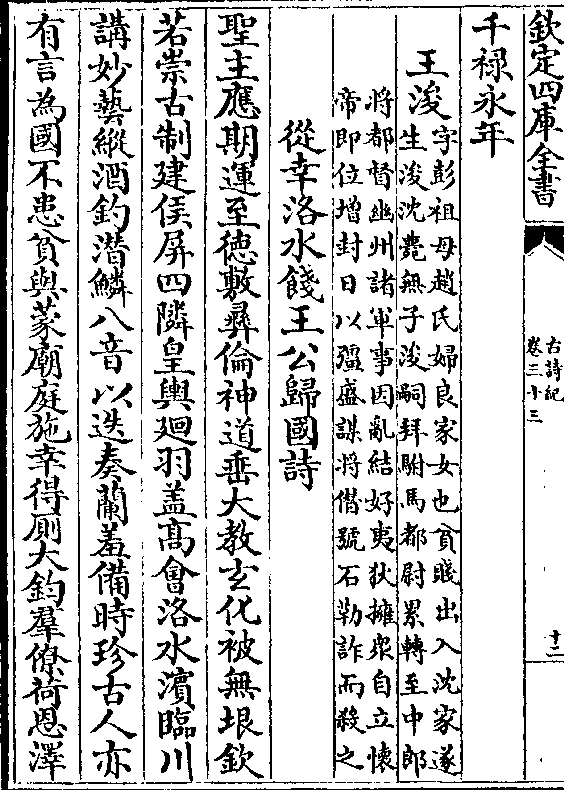 欽定四庫全書
古詩紀
卷三十三
十二
千禄永年
王浚
字彭祖母趙氏婦良家女也貧賤出入沈家遂
生浚沈薨無子浚嗣拜駙馬都尉累轉至中郎
將都督幽州諸軍事因亂結好夷狄擁衆自立懷
帝即位增封日以彊盛謀將僭號石勒詐而殺之
從幸洛水餞王公歸國詩
聖主應期運至德敷彞倫神道垂大教玄化被無垠欽
若崇古制建侯屏四隣皇輿廻羽盖髙會洛水濱臨川
講妙藝縱酒釣潜鱗八音以迭奏蘭羞備時珍古人亦
有言為國不患貧與蒙廟庭施幸得厠大鈞羣僚荷恩澤